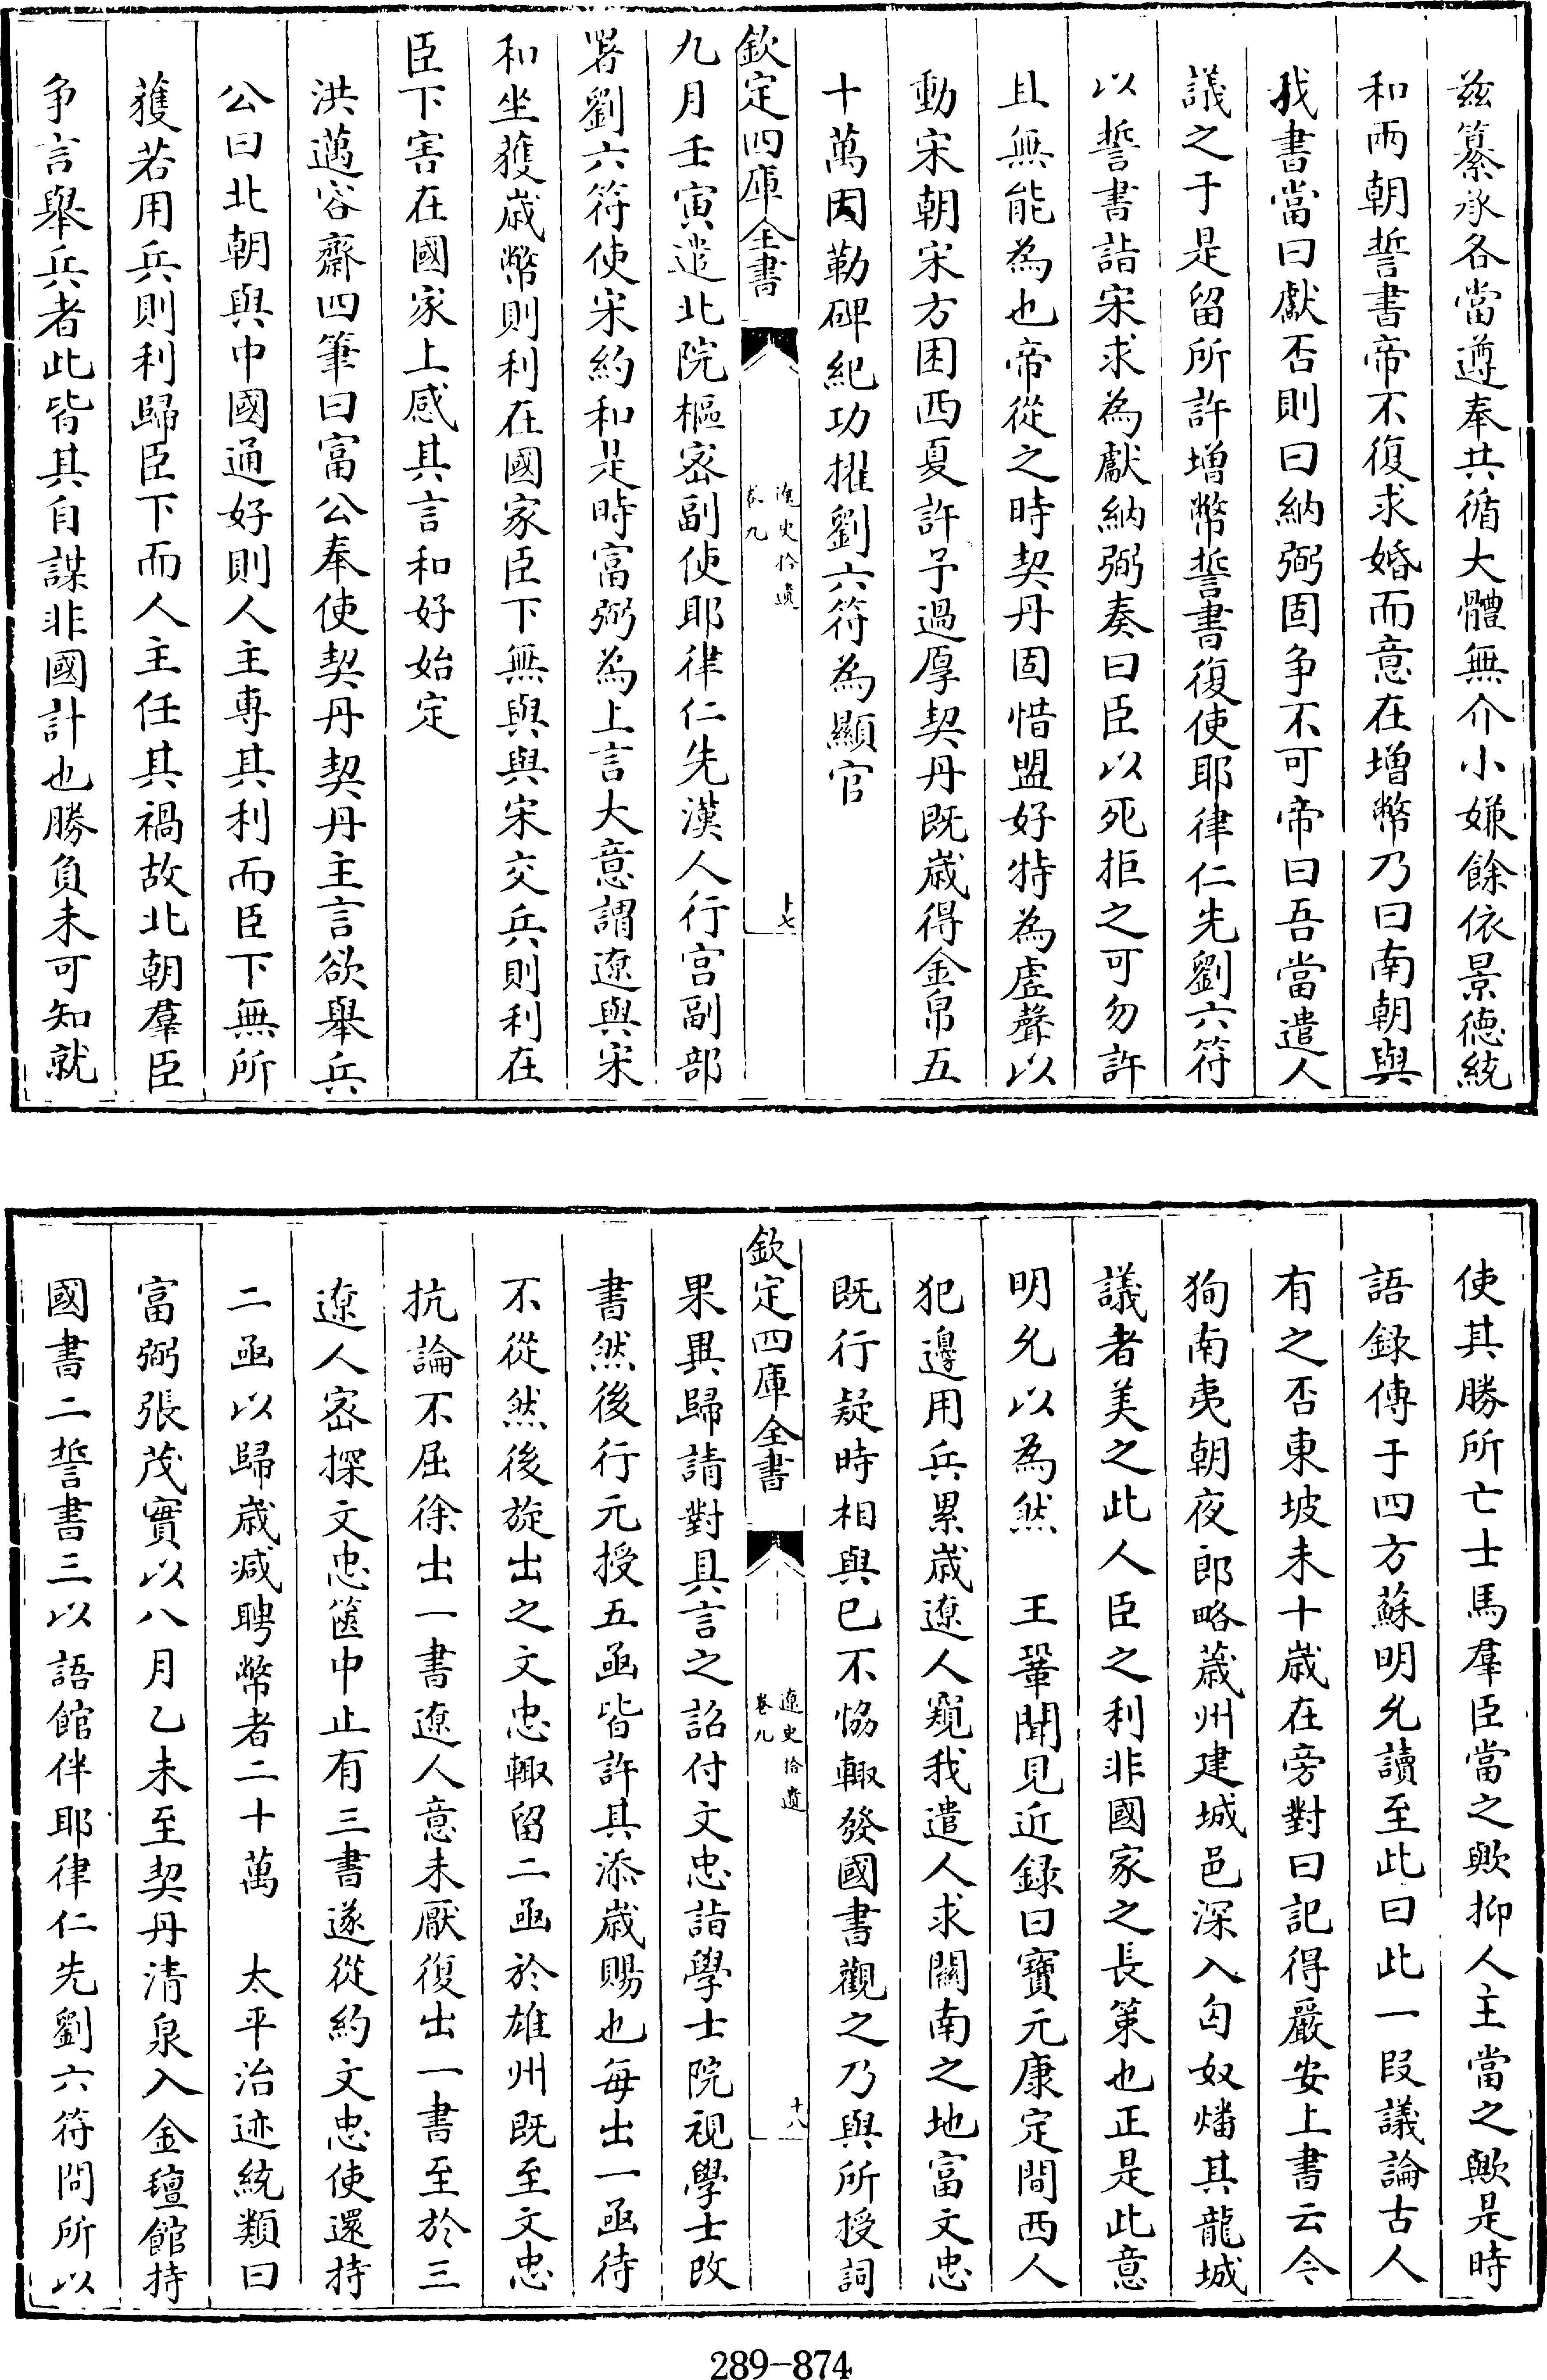 茲纂承各當遵奉共循大體無介小嫌餘依景德統
和兩朝誓書帝不復求婚而意在增幣乃曰南朝與
我書當曰獻否則曰納弼固争不可帝曰吾當遣人
議之于是留所許增幣誓書復使耶律仁先劉六符
以誓書詣宋求為獻納弼奏曰臣以死拒之可勿許
且無能為也帝從之時契丹固惜盟好特為虛聲以
動宋朝宋方困西夏許予過厚契丹既歳得金帛五
十萬因勒碑紀功擢劉六符為顯官
欽定四庫全書
遼史拾遺
卷九
十七
九月壬寅遣北院樞密副使耶律仁先漢人行宫副部
署劉六符使宋約和是時富弼為上言大意謂遼與宋
和坐獲歳幣則利在國家臣下無與與宋交兵則利在
臣下害在國家上感其言和好始定
洪邁容齋四筆曰富公奉使契丹契丹主言欲舉兵
公曰北朝與中國通好則人主專其利而臣下無所
獲若用兵則利歸臣下而人主任其禍故北朝羣臣
争言舉兵者此皆其自謀非國計也勝負未可知就
使其勝所亡士馬羣臣當之歟抑人主當之歟是時
語録傳于四方蘇明允讀至此曰此一段議論古人
有之否東坡未十歳在旁對曰記得嚴安上書云今
狥南夷朝夜郎略薉州建城邑深入匈奴燔其龍城
議者美之此人臣之利非國家之長策也正是此意
明允以為然　王鞏聞見近録曰寶元康定間西人
犯邊用兵累歳遼人窺我遣人求關南之地富文忠
既行疑時相與已不恊輙發國書觀之乃與所授詞
欽定四庫全書
遼史拾遺
卷九
十八
果異歸請對具言之詔付文忠詣學士院視學士改
書然後行元授五函皆許其添歳賜也每出一函待
不從然後旋出之文忠輙留二函於雄州既至文忠
抗論不屈徐出一書遼人意未厭復出一書至於三
遼人密探文忠篋中止有三書遂從約文忠使還持
二函以歸歳减聘幣者二十萬　太平治迹統類曰
富弼張茂實以八月乙未至契丹清泉入金䥊館持
國書二誓書三以語館伴耶律仁先劉六符問所以
289-874